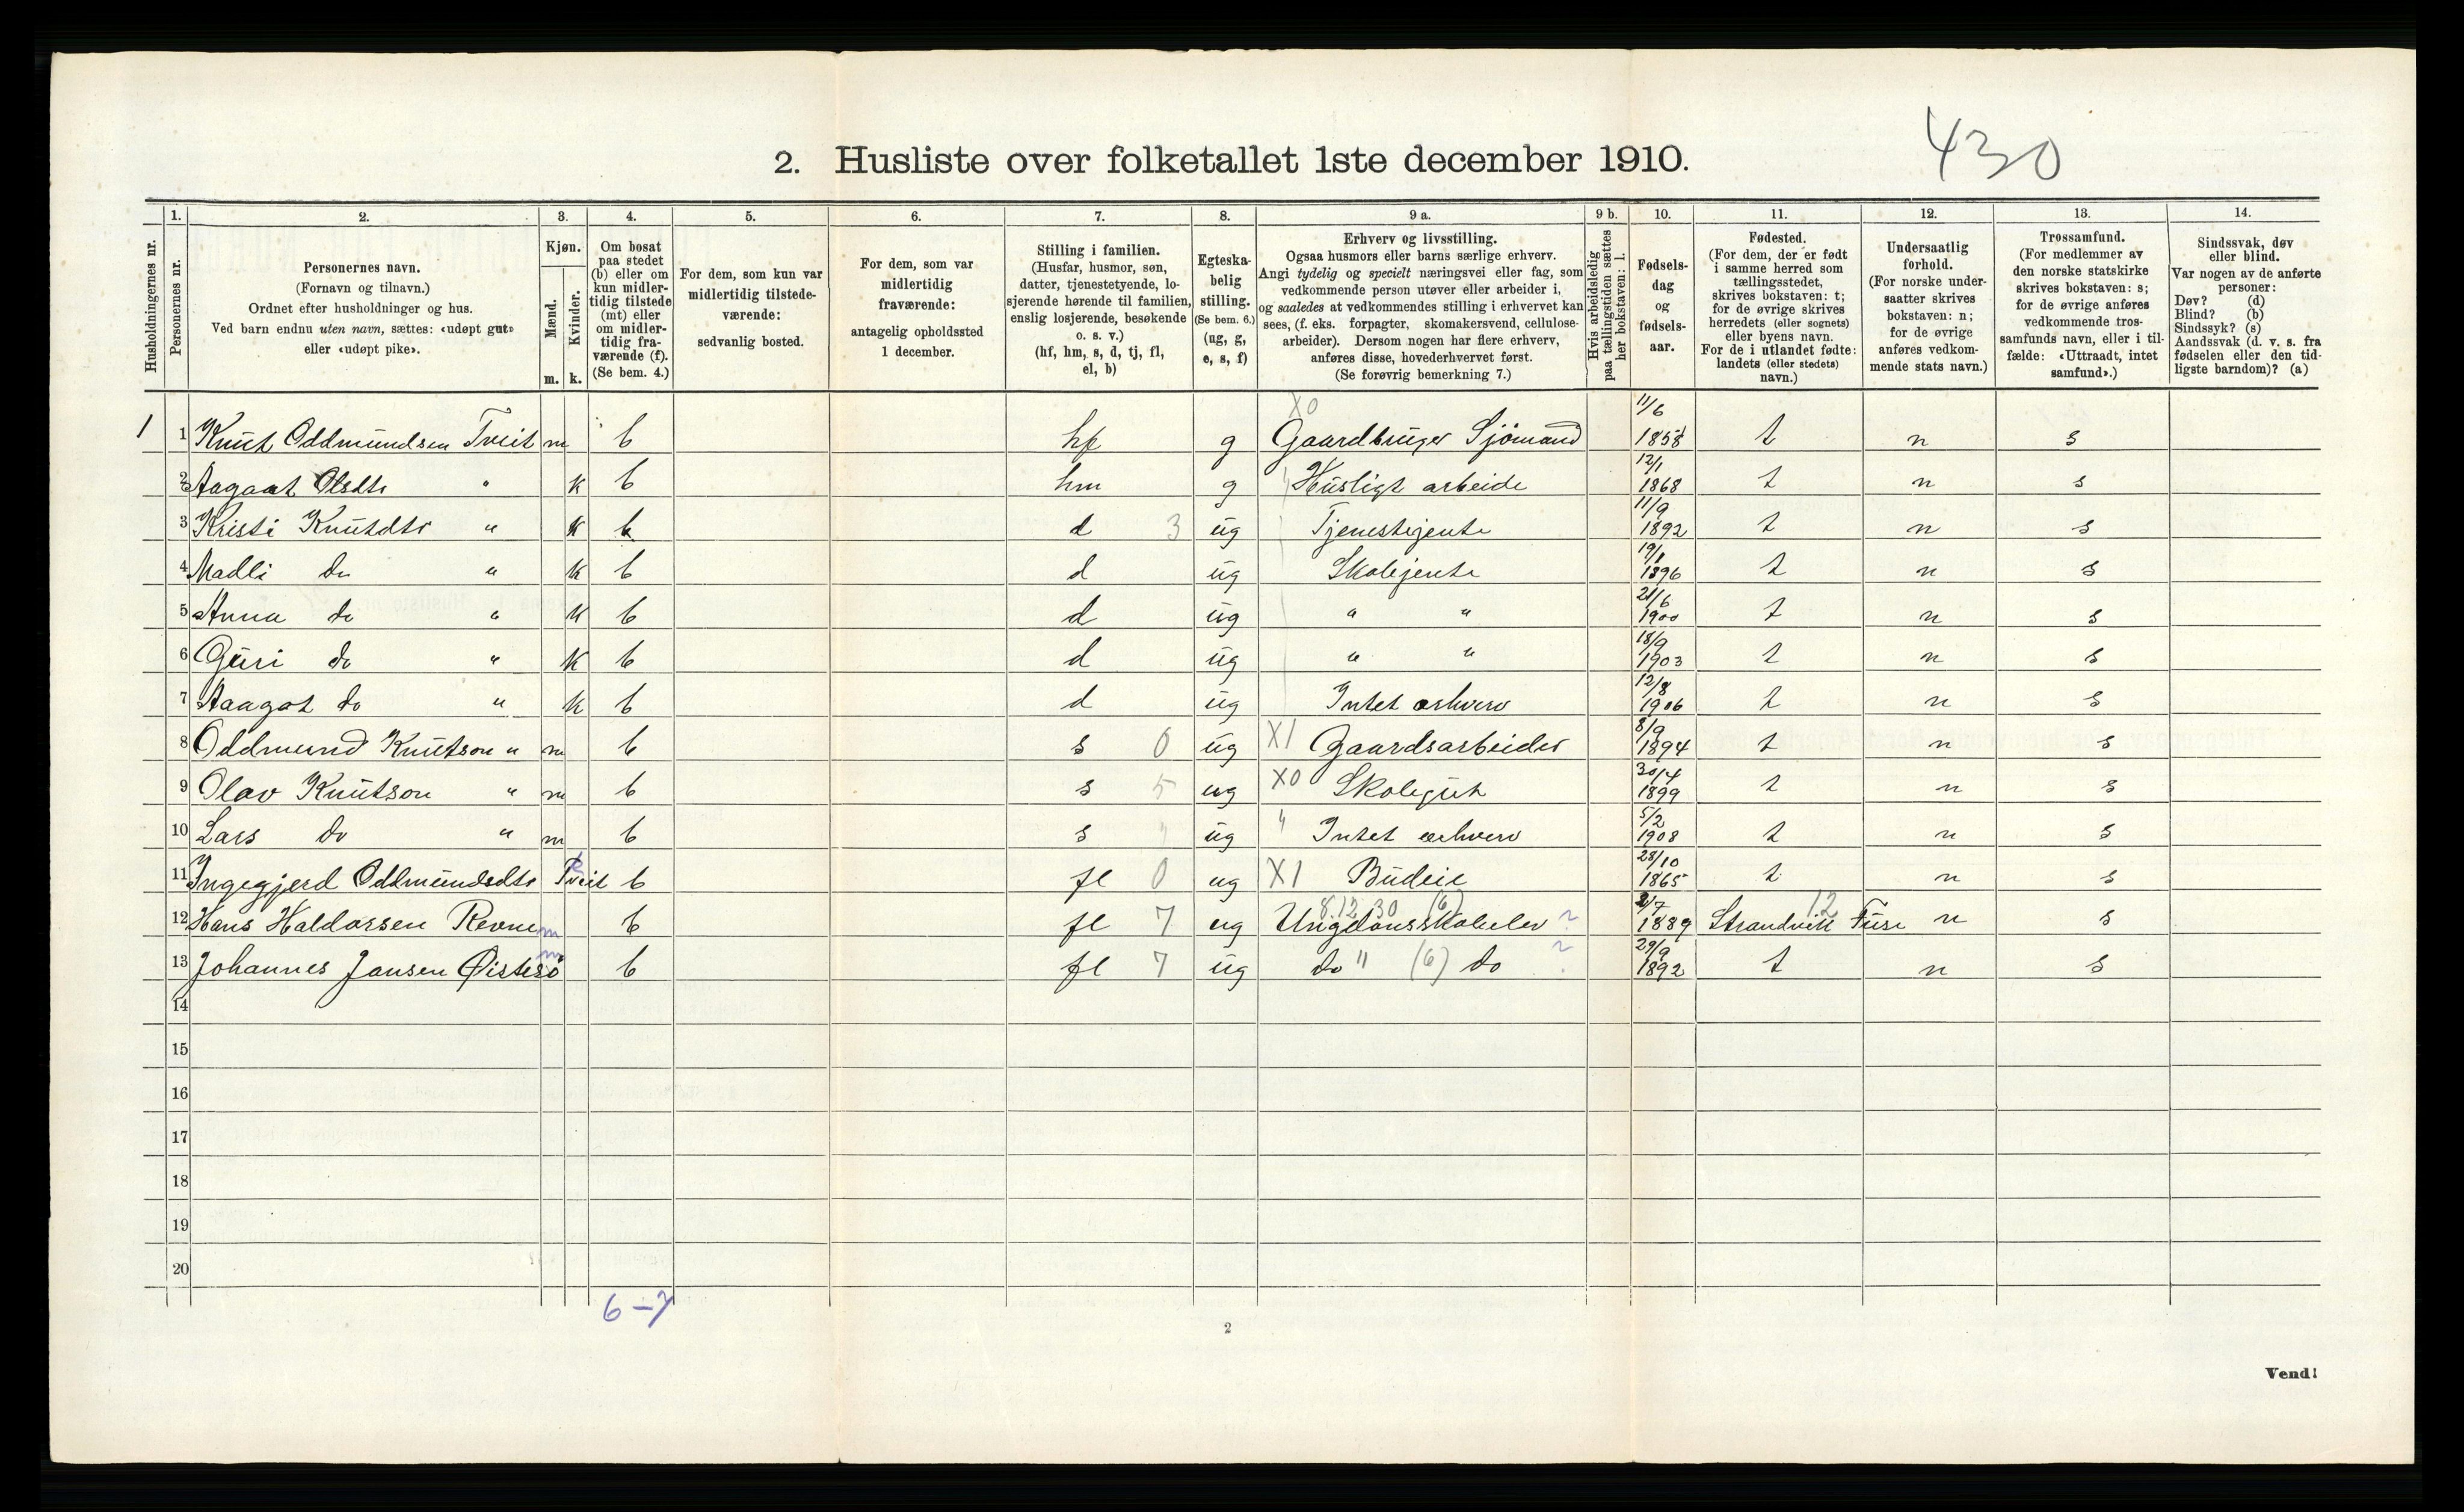 430
2. Husliste over folketallet 1ste december 1910.
1. 2. 3. 4. 5. 6. 7. 8. 9 a. 9 b. 10. 11. 12. 13. 14.
Husholdningernes nr.
Personernes nr.
Personernes navn.
(Fornavn og tilnavn.)
Ordnet efter husholdninger og hus.
Ved barn endnu uten navn, sættes: «udøpt gut»
eller «udøpt pike».
Kjøn.
Mænd.
Kvinder.
m. k.
Om bosat
paa stedet
(b) eller om
kun midler-
tidig tilstede
(mt) eller
om midler-
tidig fra-
værende (f).
(Se bem. 4.)
For dem, som kun var
midlertidig tilstede-
værende:
sedvanlig bosted.
For dem, som var
midlertidig
fraværende:
antagelig opholdssted
1 december.
Stilling i familien.
(Husfar, husmor, søn,
datter, tjenestetyende, lo-
sjerende hørende til familien,
enslig losjerende, besøkende
o. s. v.)
(hf, hm, s, d, tj, fl,
el, b)
Egteska-
belig
stilling.
(Se bem. 6.)
(ug, g,
e, s, f)
Erhverv og livsstilling.
Ogsaa husmors eller barns særlige erhverv.
Angi tydelig og specielt næringsvei eller fag, som
vedkommende person utøver eller arbeider i,
og saaledes at vedkommendes stilling i erhvervet kan
sees, (f. eks. forpagter, skomakersvend, cellulose-
arbeider). Dersom nogen har flere erhverv,
anføres disse, hovederhvervet først.
(Se forøvrig bemerkning 7.)
Hvis arbeidsledig
paa tællingstiden sættes
her bokstaven: l.
Fødsels-
dag
og
fødsels-
aar.
Fødested.
(For dem, der er født
i samme herred som
tællingsstedet,
skrives bokstaven: t;
for de øvrige skrives
herredets (eller sognets)
eller byens navn.
For de i utlandet fødte:
landets (eller stedets)
navn.)
Undersaatlig
forhold.
(For norske under-
saatter skrives
bokstaven: n;
for de øvrige
anføres vedkom-
mende stats navn.)
Trossamfund.
(For medlemmer av
den norske statskirke
skrives bokstaven: s;
for de øvrige anføres
vedkommende tros-
samfunds navn, eller i til-
fælde: «Uttraadt, intet
samfund».)
Sindssvak, døv
eller blind.
Var nogen av de anførte
personer:
Døv? (d)
Blind? (b)
Sindssyk? (s)
Aandssvak (d. v. s. fra
fødselen eller den tid-
ligste barndom)? (a)
1 1 Knut Oddmundsen Tveit m b hf g X0 Gaardbruger Sjömand 11/6 1858 t n s
2 Aagaat Olsdtr " k b hm g Husligt arbeide 12/1 1868 t n s
3 Kristi Knutdtr " k b d 3 ug Tjenestejente 11/9 1892 t n s
4 Madli do " k b d ug Skolejente 19/1 1896 t n s
5 Anna do " k b d ug " " 21/6 1900 t n s
6 Guri do " k b d ug " " 18/9 1903 t n s
7 Aaagot do " k b d ug Intet erhverv 12/8 1906 t n s
8 Oddmund Knutson " m b s 0 ug X1 Gaardsarbeider 8/9 1894 t n s
9 Olav Knutson " m b s 5 ug X0 Skolegut 30/4 1899 t n s
10 Lars do " m b s " ug " Intet erhverv 5/2 1908 t n s
11 Ingegjerd Oddmundsdtr Tveit k b fl 0 ug X1 Budeie 28/10 1865 t n s
12 Hans Haldorsen Revne m b fl 7 ug 8.12.30 (6) Ungdomsskolelev ? 2/7 1889 Strandvik Fuse 12 n s
13 Johannes Jansen Øistesö m b fl 7 ug do " (6) do ? 29/9 1892 t n s
14
15
16
17
18
19
20
6-7
2
Vend!